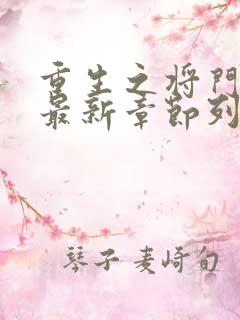 重生之将门
最新章节列
琴子麦崎旬